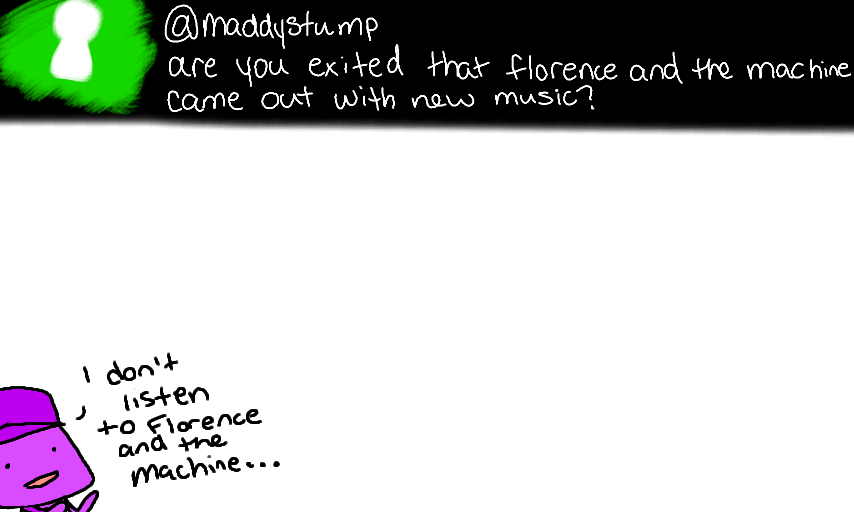 @maddystump
are you exited that florence and the machine
came out with new music?
I don't
listen
to Florence
and the
machine...